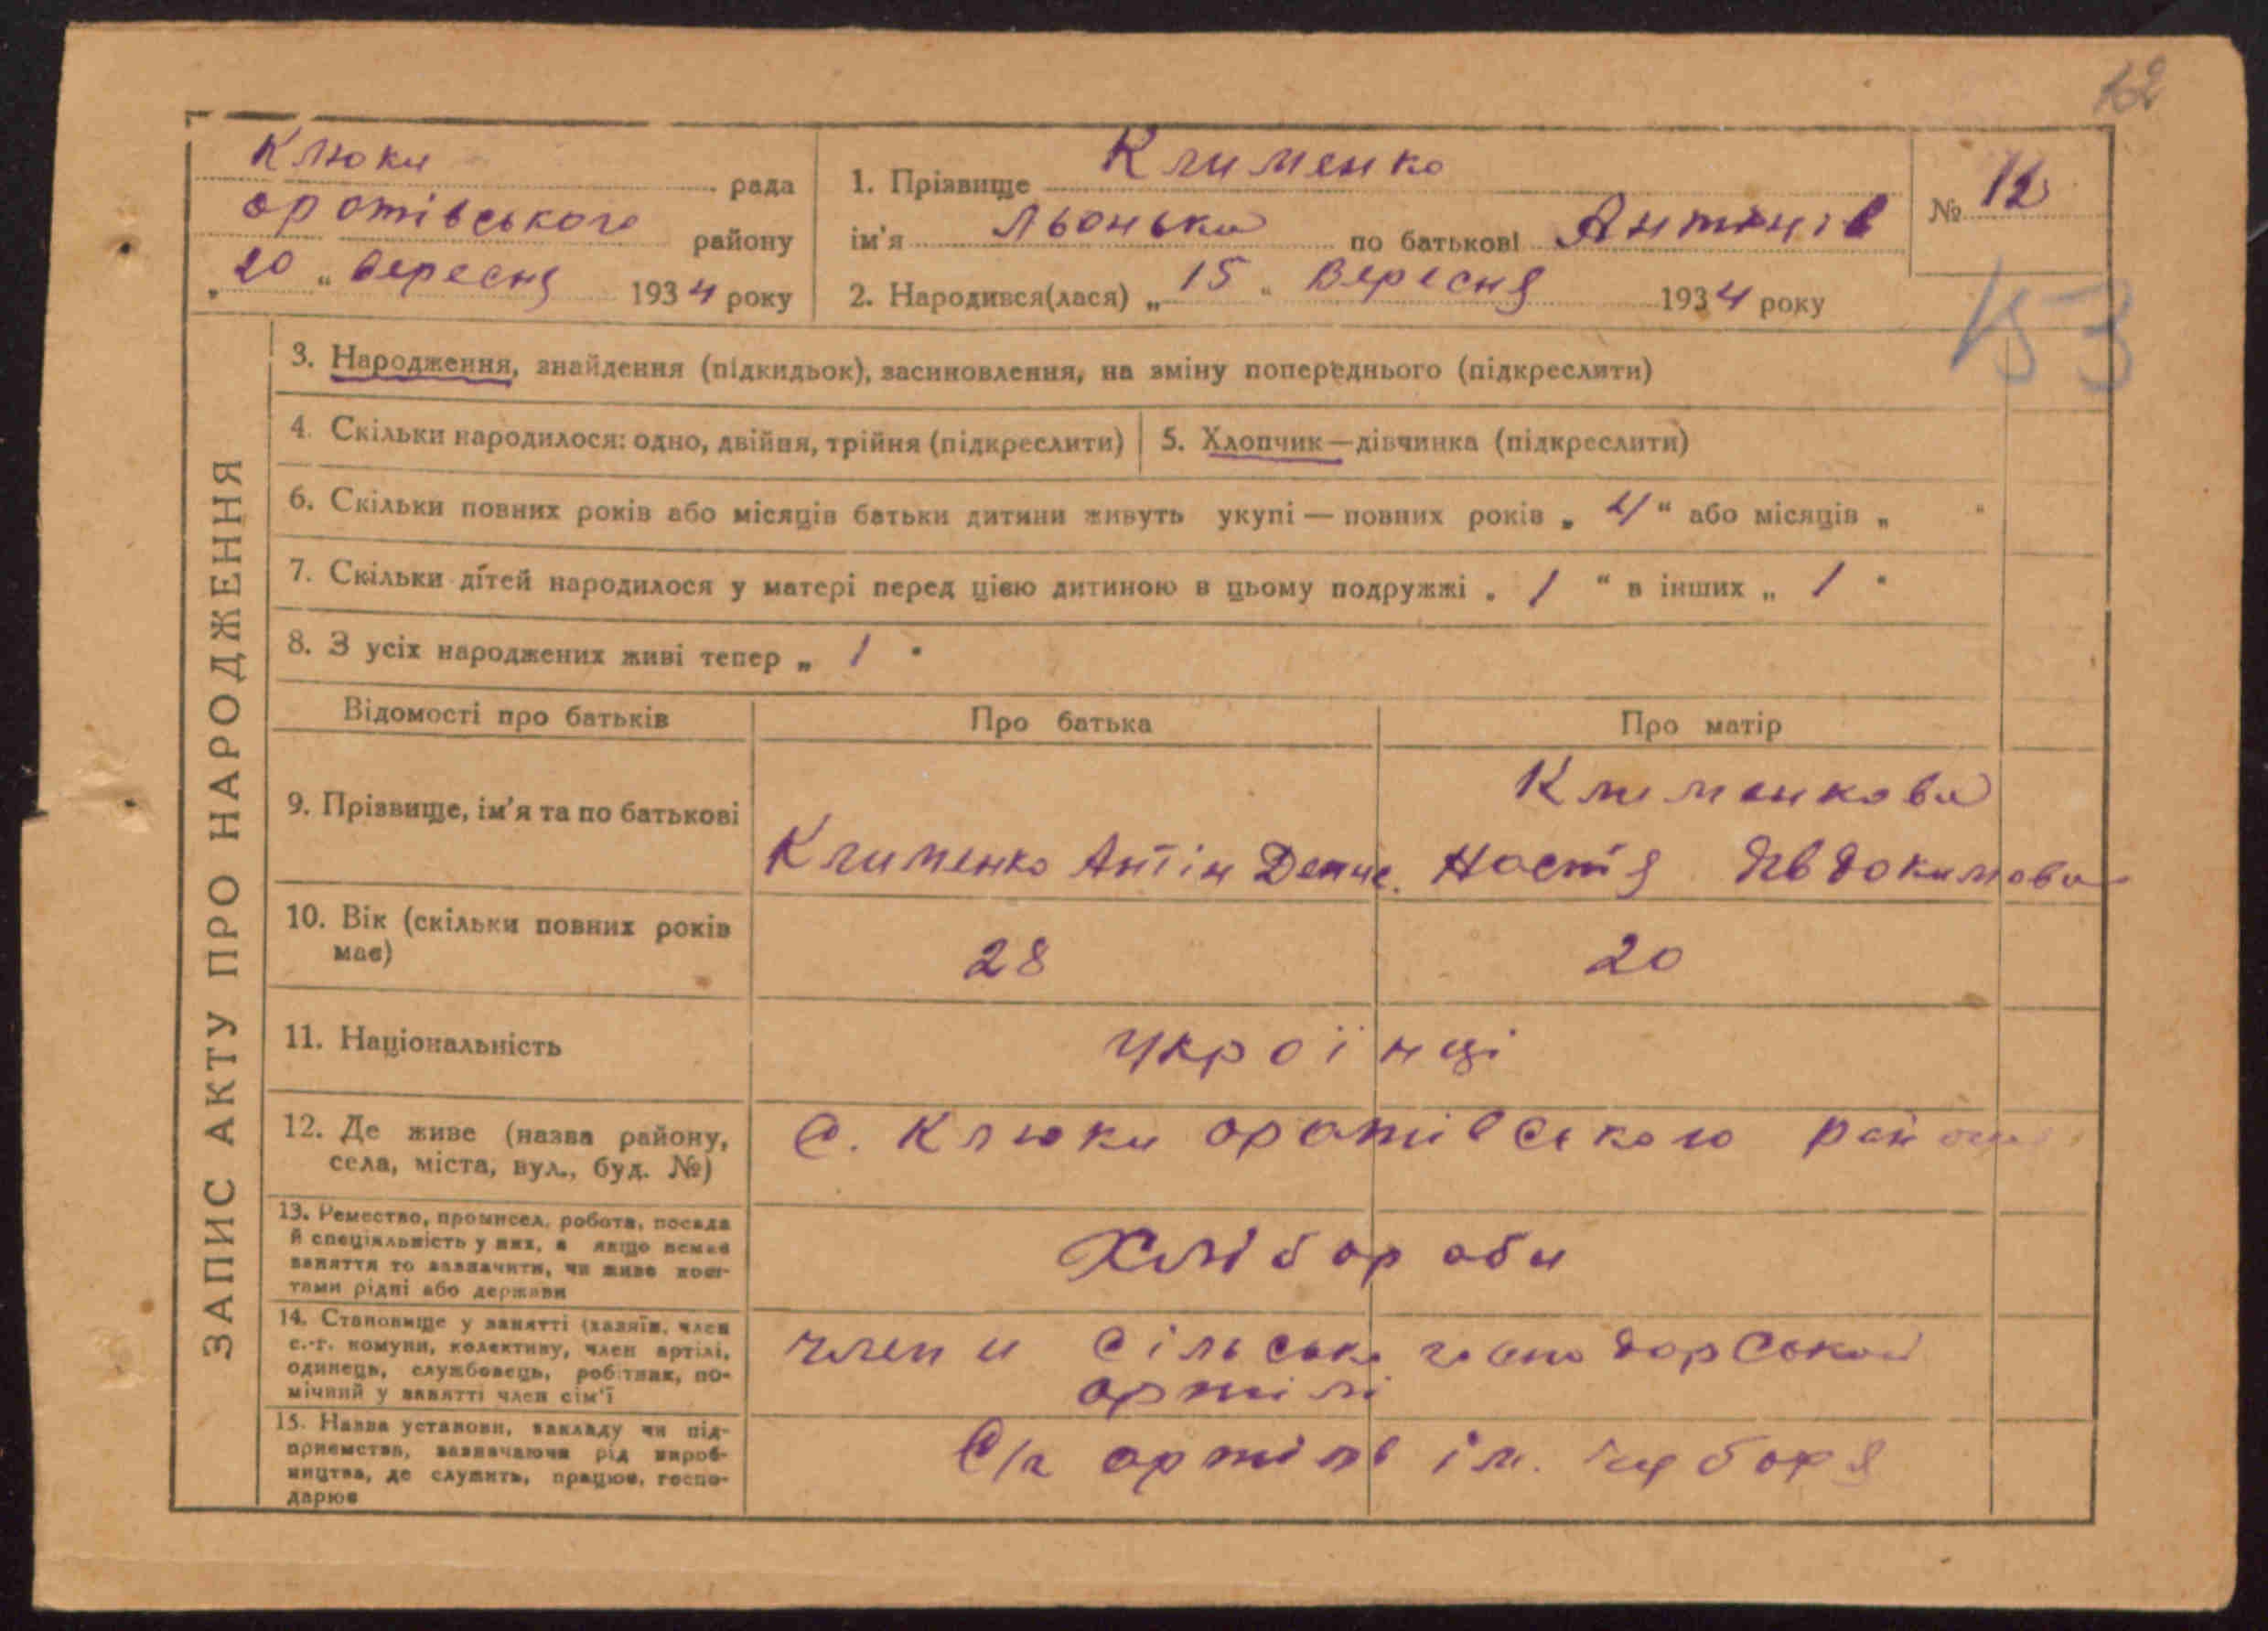 12
Клюки рада
оротівського району
„20“ вересня 1934 року
1. Прізвище Клименко
ім'я Льонька по батькові Антонів
2. Народився(лася) „15“ Вересня 1934 року
№ 12
153
ЗАПИС АКТУ ПРО НАРОДЖЕННЯ
3. Народження, знайдення (підкидьок), засиновлення, на зміну попереднього (підкреслити)
4. Скільки народилося: одно, двійня, трійня (підкреслити)
5. Хлопчик—дівчинка (підкреслити)
6. Скільки повних років або місяців батьки дитини живуть укупі — повних років „ 4 “ або місяців „ “
7. Скільки дітей народилося у матері перед цією дитиною в цьому подружжі „ 1 “ в інших „ 1 “
8. З усіх народжених живі тепер „ 1 “
Відомості про батьків Про батька Про матір
9. Прізвище, ім'я та по батькові
Клименко Антін
Клименкова
Настя Явдокимова
10. Вік (скільки повних років
має)
28 20
11. Національність
українці
12. Де живе (назва району,
села, міста, вул., буд. №)
с. Клюки оротівського району
13. Ремество, промисел, робота, посада
й спеціяльність у них, а якщо немає
заняття то зазначити, чи живе кош-
тами рідні або держави
Хлібороби
14. Становище у занятті (хазяїн, член
с.-г. комуни, колективу, член артілі,
одинець, службовець, робітник, по-
мічний у занятті член сім'ї
члени сільсько господарської
артілі
15. Назва установи, закладу чи під-
приємства, зазначаючи рід вироб-
ництва, де служить, працює, госпо-
дарює
С/г артіль ім. Чубаря